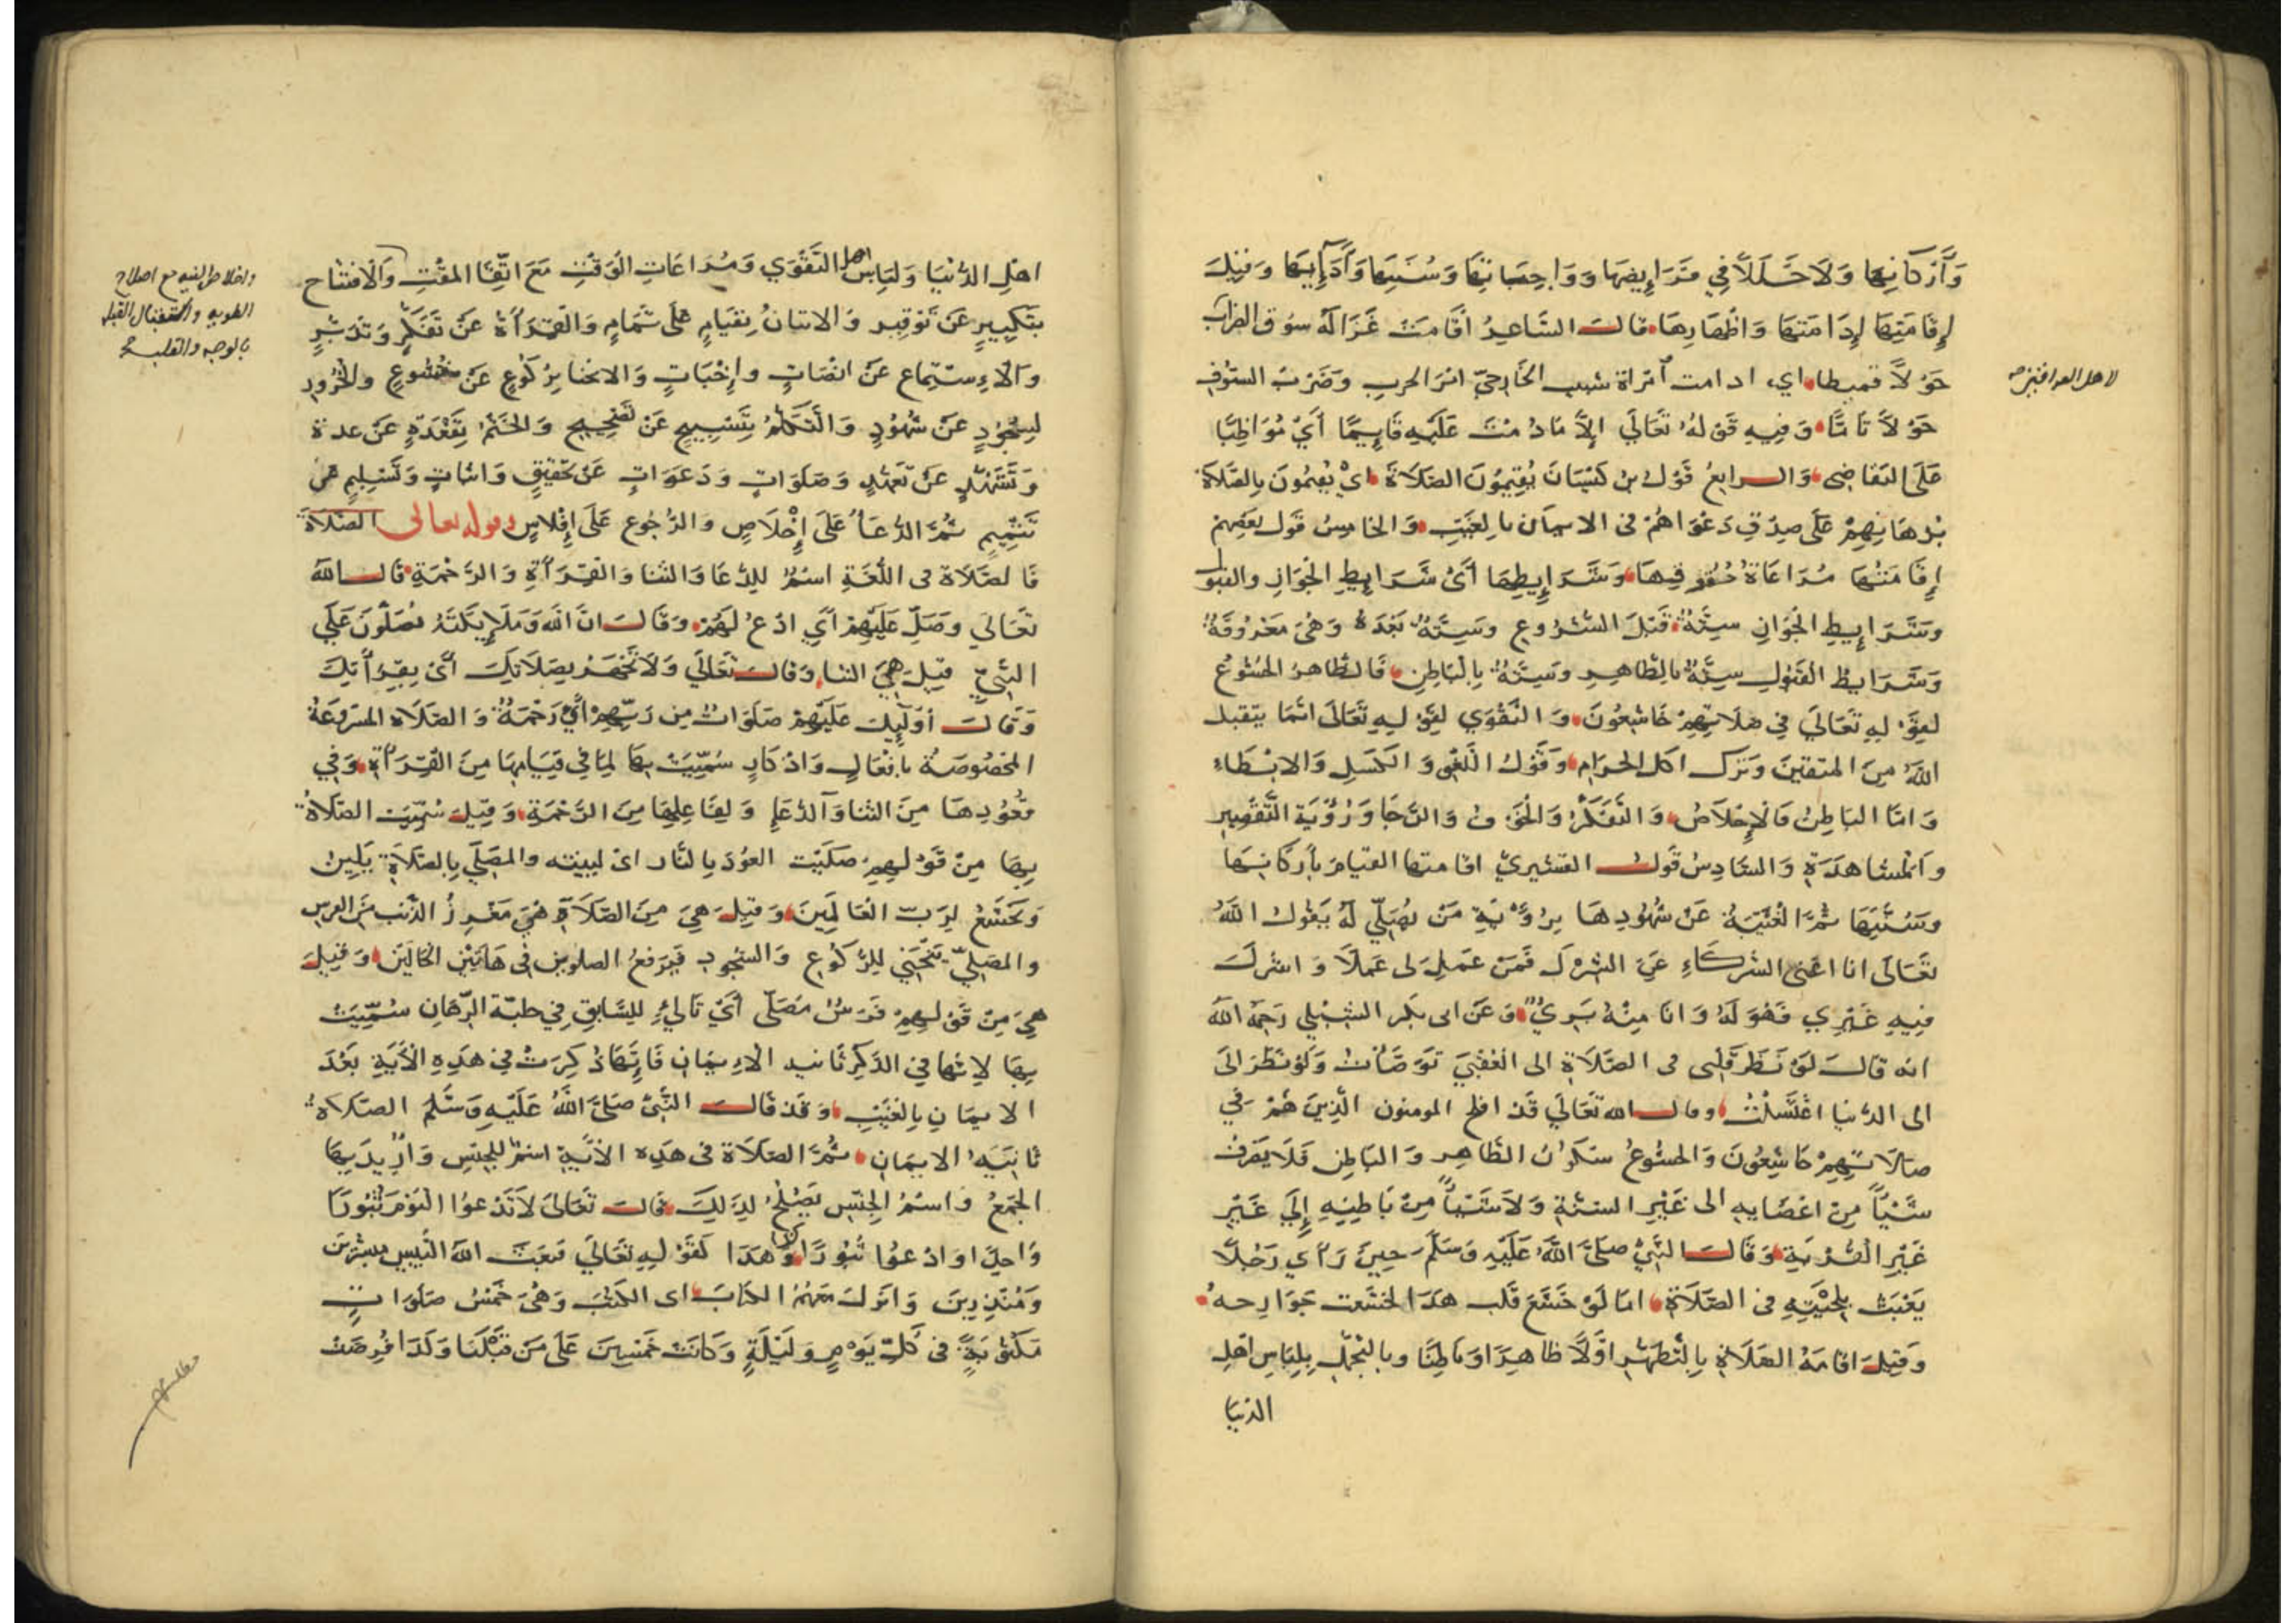 وَأَرْكَانِهَا وَلَا خَلَلًا فِي فَرَايِضِهَا وَوَاجِبَاتِهَا وَسُنَنِهَا وَآدَابِهَا وَقِيلَ
إِقَامَتِهَا إِدَامَتهَا وَاظْهَارِهَا قَالَ الشَّاعِرُ اقَامَتْ غَزَالَةُ سُوقَ الضِّرَابِ
لاهل العراقين
حَوْلاً قميطا اي ادامت امراة شبيب الخَارِجيّ اثر الحرب وَضَرْبَ السيُوفِ
حَوْلاً تَامًّا وَفِيهِ قَوْلُهُ تَعَالَي اِلاَّ مَا دُمْتَ عَلَيْهِ قَايِمًا أَيْ مُوَاظِبًا
عَلَى التقَاضِى وَالرابعُ قَوْلُ بن كَيْسَانَ يُقِيمُونَ الصَّلَاةَ اىْ يُقِيمُونَ بِالصَّلَاة
بُرهَانِهِمْ عَلَى صِدْقِ دَعْوَاهُمْ فى الايمَان بالغَيْبِ وَالخامِسُ قَوْل بَعْضِهِمْ
إِقَامَتُهَا مُرَاعَاةُ حُقُوقِهَا وَشَرَايِطِهَا أَىْ شَرَايِطِ الجَوَازِ والقَبُول
وَشَرَايِطِ الجَوَازِ سِتَّةٌ قَبْلَ الشُّرُوعِ وَسِتَّةٌ بَعْدَهُ وَهْىَ مَعْرُوفَةٌ
وَشَرَايِطُ القَبُولِ سِتَّةٌ بالظَّاهِرِ وَسِتَّةٌ بِالْبَاطِنِ فَالظَّاهرُ الخشُوعُ
لِقَوْلِهِ تَعَالَى فِي صَلَاتِهِمْ خَاشِعُونَ وَالتَّقْوَي لِقَوْلِهِ تَعَالَى انَّمَا يتقبل
اللهُ مِنَ المتقينَ وَتركَ اكل الحرَامِ وَقَوْلِ اللَّغْوِ وَالكَسَلِ وَالابْطَاءِ
وَامَّا البَاطِنُ فَالْإِخْلَاصُ وَالتَّفَكُّرُ وَالخَوْفُ وَالرَّجَا وَرُؤْيَة التَّقْصِيرِ
وَالْمشَاهَدَةِ وَالسَّادِسُ قَوْلُ القشيريّ اقامتها القيَامُ بأَرْكَانِهَا
وَسُنَنِهَا ثُمَّ الْغَيْبَةُ عَنْ شُهُودِهَا بِرُؤْيَةِ مَنْ يُصَلِّي لَهُ يَقُولُ اللهُ
تَعَالَى انا اغنى الشركَاءِ عَنِ الشرْكِ فَمَنْ عَمِلَ لى عَمَلًا وَاشركَ
فِيهِ غَيْرِي فَهُوَ لَهُ وَانَا مِنْهُ بَرِيٌ وَعَنْ ابى بكر الشبْلي رَحِمَهُ اللهُ
انه قالَ لَوْ نَظَرَ قَلْبى فى الصَّلَاةِ الى العُقْبَى تَوَضَّأْتُ وَلَوْ نَظَرَ الَى
الى الدُّنيا اغْتَسَلْتُ وقال الله تَعَالَي قَدْ افلح المومنون الَّذِينَ هُمْ فِي
صَلَاتِهِمْ خَاشِعُونَ وَالخشُوعُ سُكُونُ الظَّاهِرِ وَالبَاطِنِ فَلَا يَصْرِفُ
شَيْئاً مِنْ اعْضَايهِ الى غَيْرِ السنَّةِ وَلَا شَيْئاً مِنْ بَاطِنِهِ إِلَي غَيْرِ
غَيْرِ الْقُرْبَةِ وَقَالَ النَّبِيُّ صَلَّى اللهُ عَلَيْهِ وَسَلَّمَ حِينَ رَأَي رَجُلاً
يَعْبَثُ بِلِحْيَتِهِ فى الصَّلَاةِ امَا لَوْ خَشَعَ قَلْب هَذَا لخشَعَت جَوَارِحهُ
وَقِيلَ اقَامَةُ الصَّلَاةِ بِالتَّطَهُّرِ اوَّلاً ظَاهِرًا وَبَاطِنًا وبالتجمّل بِلِبَاسِ اهْلِ
الدنيَا
اهْلِ الدُّنيَا وَلِبَاس اهل التَّقْوَي وَمُرَاعَاتِ الوَقْتِ مَعَ اتِّقَا المَقْتِ وَالافْتتَاح
واخلاص النيه مع اصلاح
الطويه واستقبال القبله
بالوجه والقلب صح
بِتَكْبِيرٍ عَنْ تَوْقِيرٍ وَالاتيَانُ بِقِيَامٍ عَلَى تَمَامٍ وَالقِرَأَة عَنْ تَفَكُّرٍ وَتَدَبُّرٍ
وَالاِسْتِمَاع عَنْ انْصَاتٍ وإخْبَاتٍ وَالانحنَا بِرُكُوعٍ عَنْ خُشُوعٍ والخُرُور
لِسُجُودٍ عَنْ شُهُودٍ وَالتَّكَلُّم بِتَسْبِيحٍ عَنْ تَصْحِيحٍ وَالخَتْمُ بِقَعْدَةٍ عَنْ عدة
وَتَشَهُّدٍ عَنْ تَعَهُّدٍ وَصَلَوَاتٍ وَدَعَوَاتٍ عَنْ تحْقِيقٍ وَاثبَاتٍ وَتَسْلِيمٍ عَن
تَتْمِيمٍ ثُمَّ الدُّعَأ عَلَى إِخْلَاصٍ وَالرُّجُوع عَلَى إِفْلاسٍ وقوله تعالى الصَّلَاةَ
فَالصَّلَاة فى اللُّغَةِ اسْمٌ لِلدُّعَا وَالثنَا وَالقِرَأَةِ وَالرَّحْمَةِ قَالَ اللهُ
تَعَالَي وَصَلِّ عَلَيْهِمْ أَيِ ادْعُ لَهُمْ وَقَالَ انَّ اللهَ وَمَلَايِكَتَهُ يُصَلُّونَ عَلَي
النَّبِيِّ قِيلَ هِيَ الثنا وَقالَ تَعَالَي وَلَا تَجْهَرْ بِصَلَاتِكَ أَىْ بِقِرَأَتِكَ
وَقَالَ أُولَٓيِكَ عَلَيْهِمْ صَلَوَاتٌ مِن رَبِّهِمْ أَيْ رَحْمَةٌ وَالصَّلَاة المشروعَةُ
المخصُوصَةُ بافْعَالٍ وَاذكَارٍ سُمِّيَتْ بِهَا لِمَا فى قِيَامِهَا مِنَ القِرَأَةِ وَفِي
قُعُودِهَا مِنَ الثنا وَالدُّعَاءِ وَلِفَاعِلِهَا مِنَ الرَّحْمَةِ وَقِيلَ سُمِّيَت الصَّلَاةُ
بِهَا مِنْ قَوْلِهِمْ صَلَيْت العُودَ بالنَّار اىْ لينته والمصَلّى بِالصَّلَاةِ يَلِينُ
وَيَخْشَعُ لِرَبِّ العَالَمِينَ وَقِيلَ هِيَ مِنَ الصَّلَا هِيَ مَغْرِزُ الذَّنب مِنَ الفرس
والمصَلِّى يَنْحَنِي لِلرُّكُوعِ وَالسُّجُودِ فَيَرفعُ الصلوين فى هَاتَيْنِ الحَالَيْنِ وَقِيلَ
هِيَ مِنْ قَوْلِهِمْ فَرَسٌ مُصَلّى أَيْ تَالِيْ لِلسَّابقِ فِي حلبَة الرِّهَانِ سُمِّيَتْ
بِهَا لِانَّهَا فِي الذِّكْرِ ثَانيَة الاِيمَانِ فَاِنَّهَا ذُكِرَتْ فِي هَذِهِ الْأَيَةِ بَعْدَ
الايمَانِ بِالغَيْبِ وَقَدْ قَالَ النَّبِىُّ صَلَّى اللهُ عَلَيْهِ وَسَلَّمَ الصَّلَاةُ
ثَانيَةُ الايمَانِ ثُمَّ الصَّلَاة فى هَذِه الأَيَةِ اسْمٌ لِلجِنسِ وَأُرِيدَ بِهَا
الجَمْعُ وَاسْمُ الجِنْسِ يَصْلُحُ لِذَلِكَ قَالَ تَعَالَى لَا تَدْعُوا اليَوْمَ ثُبُورًا
وَاحِدًا وَادْعُوا ثُبُورًا كثيرا وَهَذَا كَقَوْلِهِ تَعَالَي فَبَعَثَ اللهُ النَّبِيينَ مبَشِّرِينَ
وَمُنْذِرِينَ وَانزلَ مَعَهُمُ الكتَابَ اى الكتُبَ وَهْيَ خَمْسُ صَلَوَاتٍ
مَكْتُوبَةٌ فى كُلِّ يَوْمٍ وَلَيْلَةٍ وَكَانَتْ خَمْسِينَ عَلَى مَنْ قَبْلَنَا وَكَذَا فُرِضَتْ
مطلب